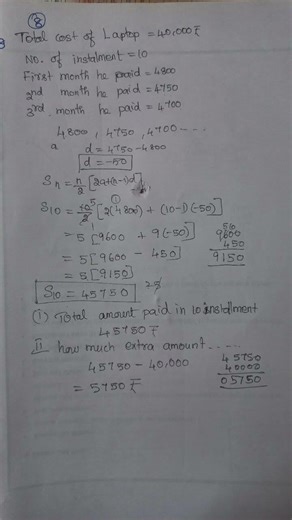 ⑧
Total cost of Laptop = 40,000 ₹
No. of instalment = 10
First month he praid = 4800
2nd month he paid = 4750
3rd month he paid = 4700
4800, 4750, 4700 - - - -
a d = 4750 - 4800
d = -50
Sn = n/2 [2a+(n-1)d]
S10 = 10/2 5 [2(4800) + (10-1)(-50)]
= 5 [9600 + 9(-50)]
= 5 [9600 - 450]
9600
450
9150
= 5 [9150]
S10 = 45750
(i) Total amount paid in 10 installment
45750 ₹
II how much extra amount......
45750 - 40,000
= 5750 ₹
45750
40000
05750